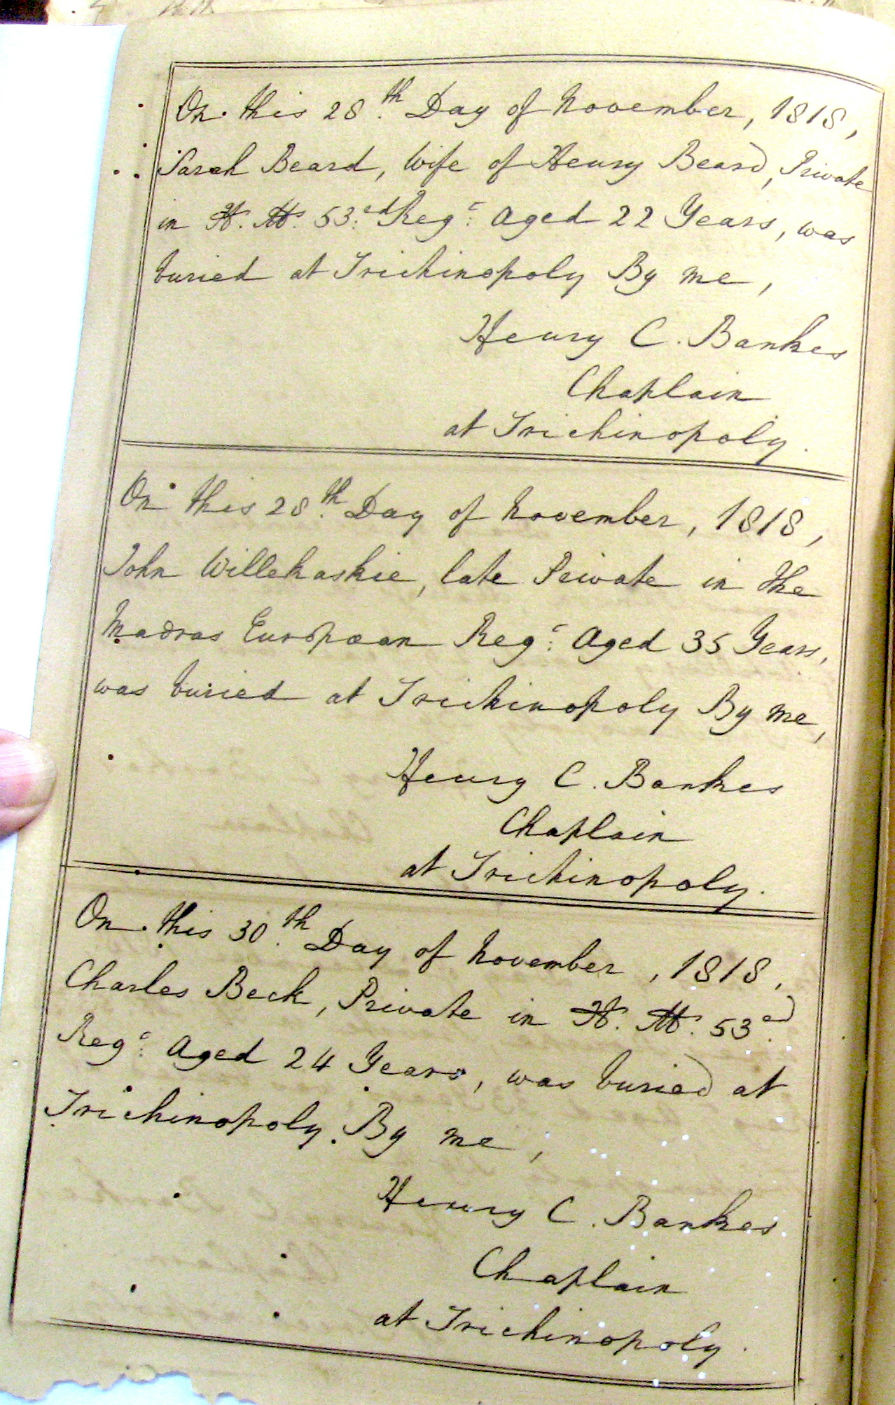 On this 28th Day of November, 1818,
Sarah Beard, Wife of Henry Beard, Private
in H. M. 53rd Regt. Aged 22 Years, was
buried at Trichinopoly By me,
Henry C. Bankes
Chaplain
at Trichinopoly.
On this 28th Day of November, 1818,
John Willekaskie, late Private in the
Madras European Regt. Aged 35 Years,
was buried at Trichinopoly By me,
Henry C. Bankes
Chaplain
at Trichinopoly.
On this 30th Day of November, 1818,
Charles Beck, Private in H. M. 53rd
Regt. Aged 24 Years, was buried at
Trichinopoly. By me,
Henry C. Bankes
Chaplain
at Trichinopoly.